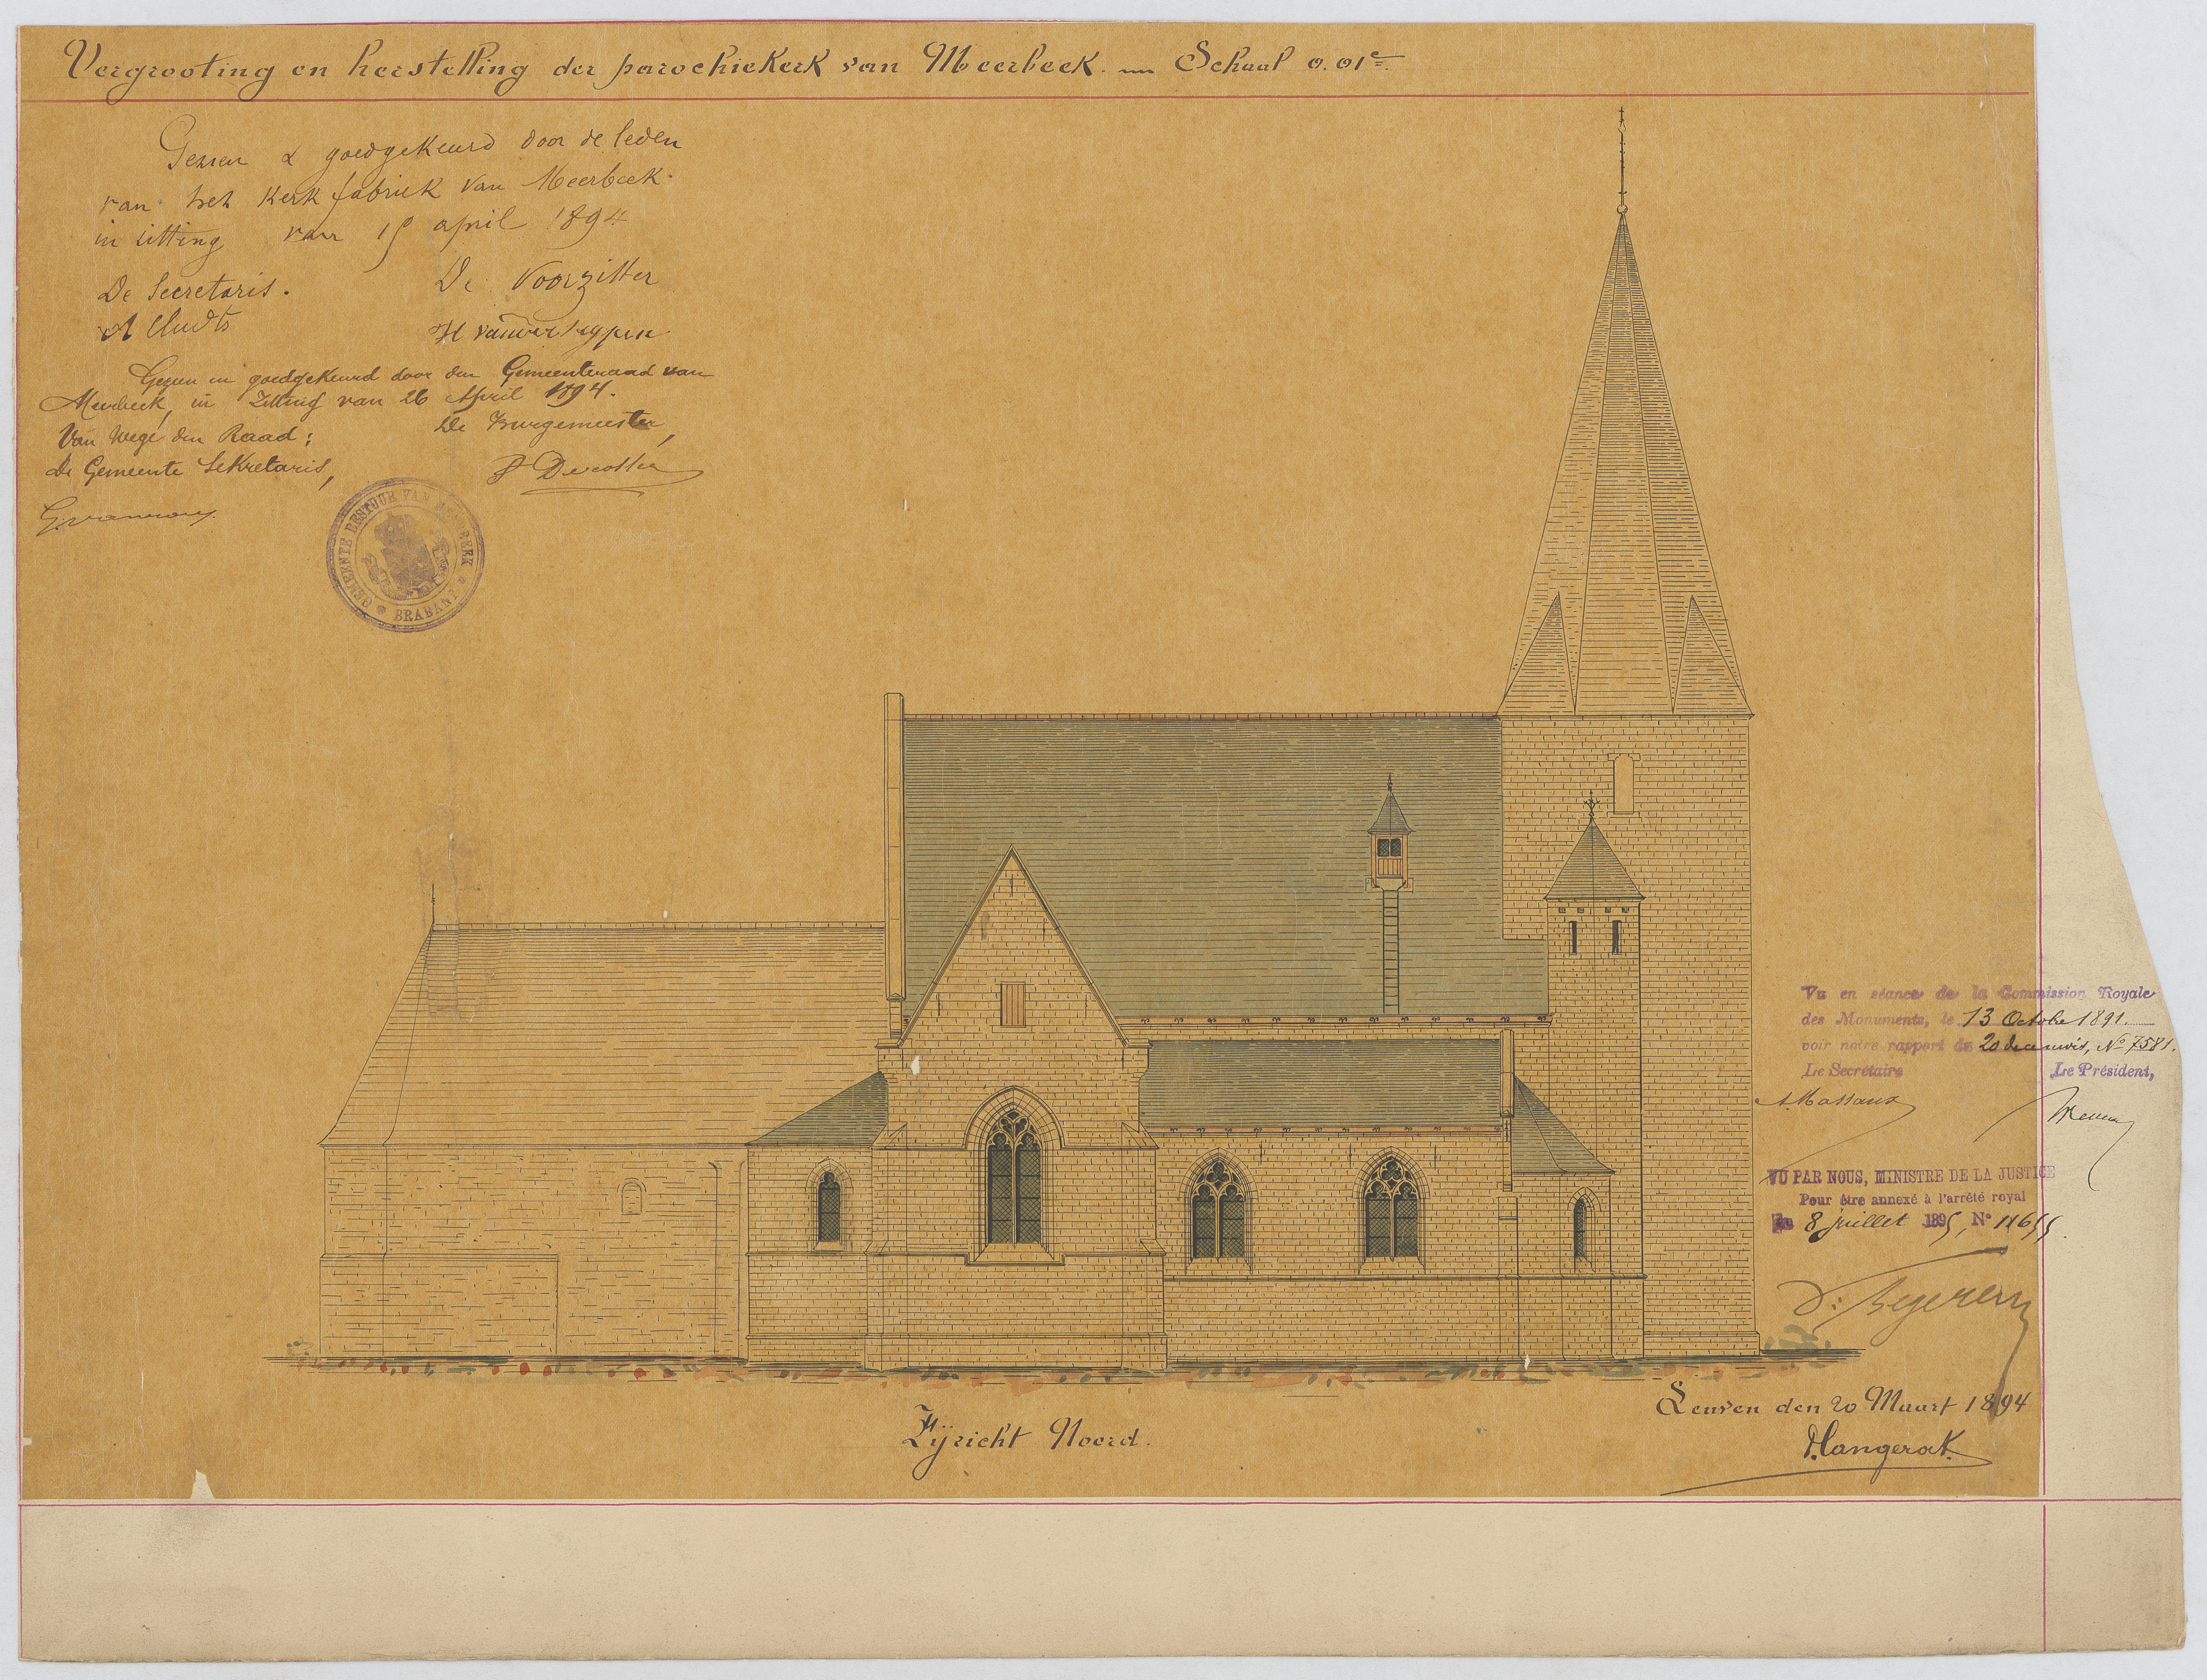 Vergrooting en herstelling der parochiekerk van Meerbeek. Schaal 0.01e.
Gezien & goedgekeurd door de leden
van het Kerkfabriek van Meerbeek.
in zitting van april 1894
De Secretaris. De Voorzitter
A Cludts
Gezien en goedgekeurd door den Gemeenteraad van
Meerbeek, in Zitting van 26 April 1894.
Van Wege den Raad: De Burgemeester,
De Gemeente Sekretaris,
GEMEENTE BESTUUR VAN MEERBEEK * BRABANT *
Vu en séance de la Commission Royale
des Monuments, le 13 Octobre 1891.
voir notre rapport du 20 de ce mois, No 7581.
Le Secrétaire Le Président,
A. Massaux
VU PAR NOUS, MINISTRE DE LA JUSTICE
Pour être annexé à l'arrêté royal
du 8 juillet 1895, No
Leuven den 20 Maart 1894
Langerock.
Zijzicht Noord.